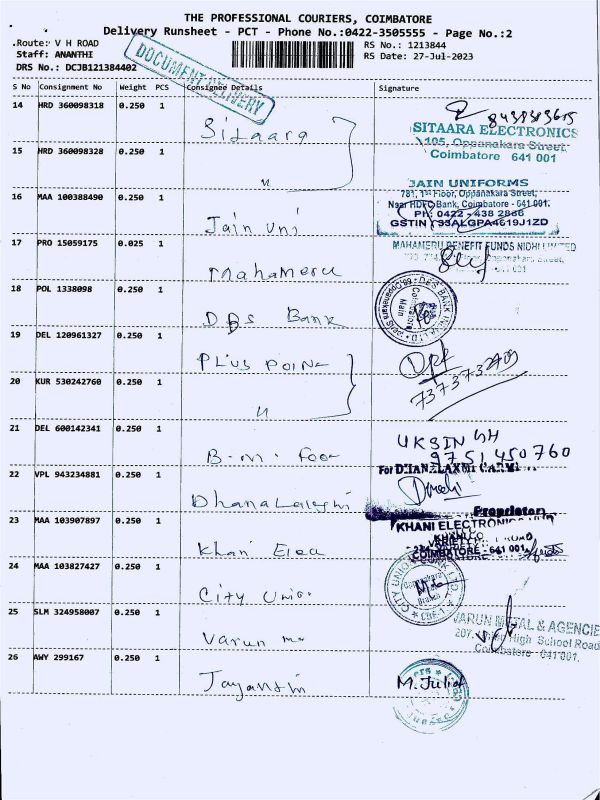 THE PROFESSIONAL COURIERS, COIMBATORE
Delivery Runsheet - PCT - Phone No.:0422-3505555 - Page No.:2
.Route: V H ROAD
Staff: ANANTHI
DRS No.: DCJB121384402
DOCUMENT DELIVERY
RS No.: 1213844
RS Date: 27-Jul-2023
S No Consignment No Weight PCS Consignee Details Signature
14 HRD 360098318 0.250 1 Sitaara
15 HRD 360098328 0.250 1 "
SITAARA ELECTRONICS
105, Oppanakara Street,
Coimbatore 641 001
16 MAA 100388490 0.250 1 Jain Uni
JAIN UNIFORMS
781, 1st Floor, Oppanakara Street,
Near HDFC Bank, Coimbatore - 641 001.
PH: 0422 - 438 2866
17 PRO 15059175 0.025 1 Mahameru
MAHAMERU BENEFIT FUNDS NIDHI LIMITED
18 POL 1338098 0.250 1 DBS Bank
19 DEL 120961327 0.250 1 PLUS POINT
20 KUR 530242760 0.250 1 "
7373732409
21 DEL 600142341 0.250 1 B.M. Foo
9751450760
22 VPL 943234881 0.250 1 Dhanalakshi
For DHANALAXMI
Proprietor
23 MAA 103907897 0.250 1 Khani Elec
KHANI ELECTRONIC
COIMBATORE - 641 001
24 MAA 103827427 0.250 1 City Union
CITY UNION BANK LTD.
CBE-1
25 SLM 324958007 0.250 1 Varun m
VARUN METAL & AGENCIE
207, High School Road
Coimbatore 641 001.
26 AWY 299167 0.250 1 Jayanthi
M. Julia